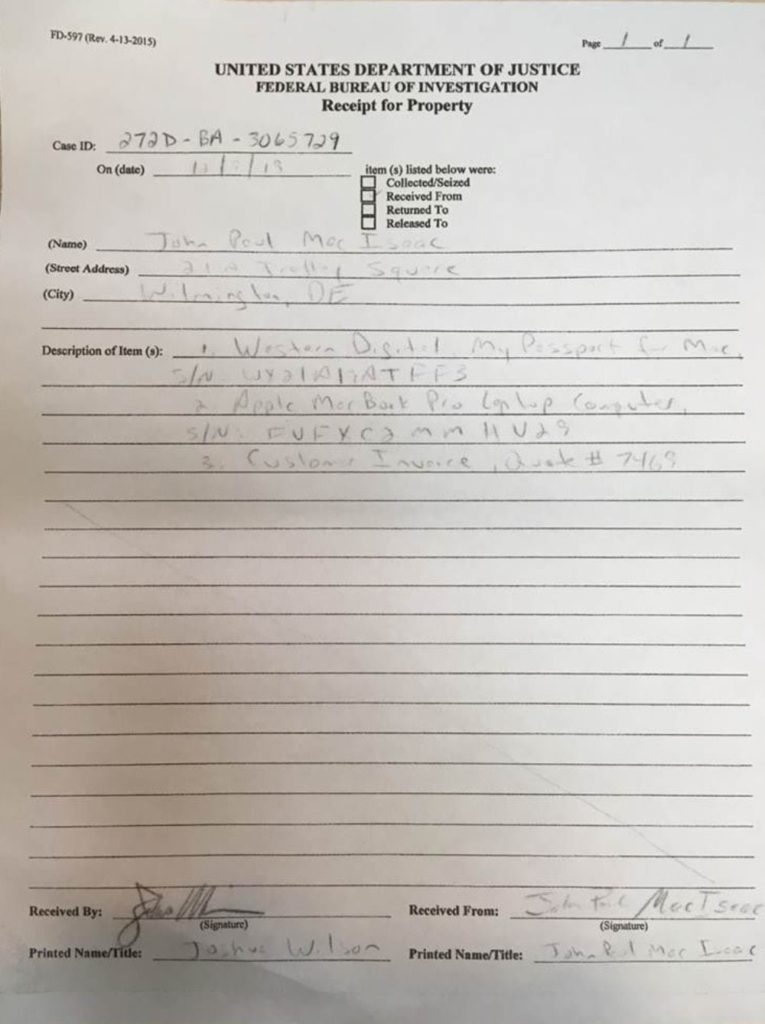 FD-597 (Rev. 4-13-2015)
Page 1 of 1
UNITED STATES DEPARTMENT OF JUSTICE
FEDERAL BUREAU OF INVESTIGATION
Receipt for Property
Case ID: 272D-BA-3065729
On (date)
item (s) listed below were:
Collected/Seized
Received From
Returned To
Released To
(Name) John Paul Mac Isaac
(Street Address) Trolley Square
(City) Wilmington, DE
Description of Item (s): 1. Western Digital My Passport for Mac,
S/N:
2. Apple MacBook Pro Laptop Computer,
S/N:
3. Customer Invoice, Quote # 7469
Received By:
(Signature)
Received From: John Paul Mac Isaac
(Signature)
Printed Name/Title: Joshua Wilson
Printed Name/Title: John Paul Mac Isaac